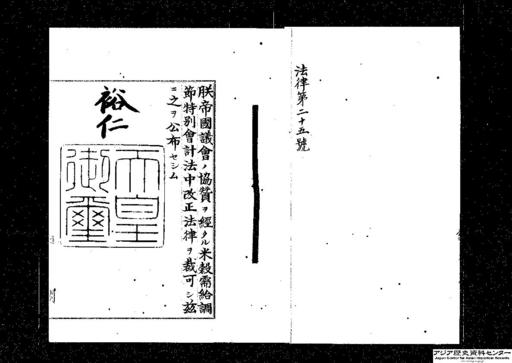 法律第二十五號
朕帝國議會ノ協贊ヲ經タル米穀需給調
節特別會計法中改正法律ヲ裁可シ茲
ニ之ヲ公布セシム
裕仁
天皇
御璽
アジア歴史資料センター
Japan Center for Asian Historical Records